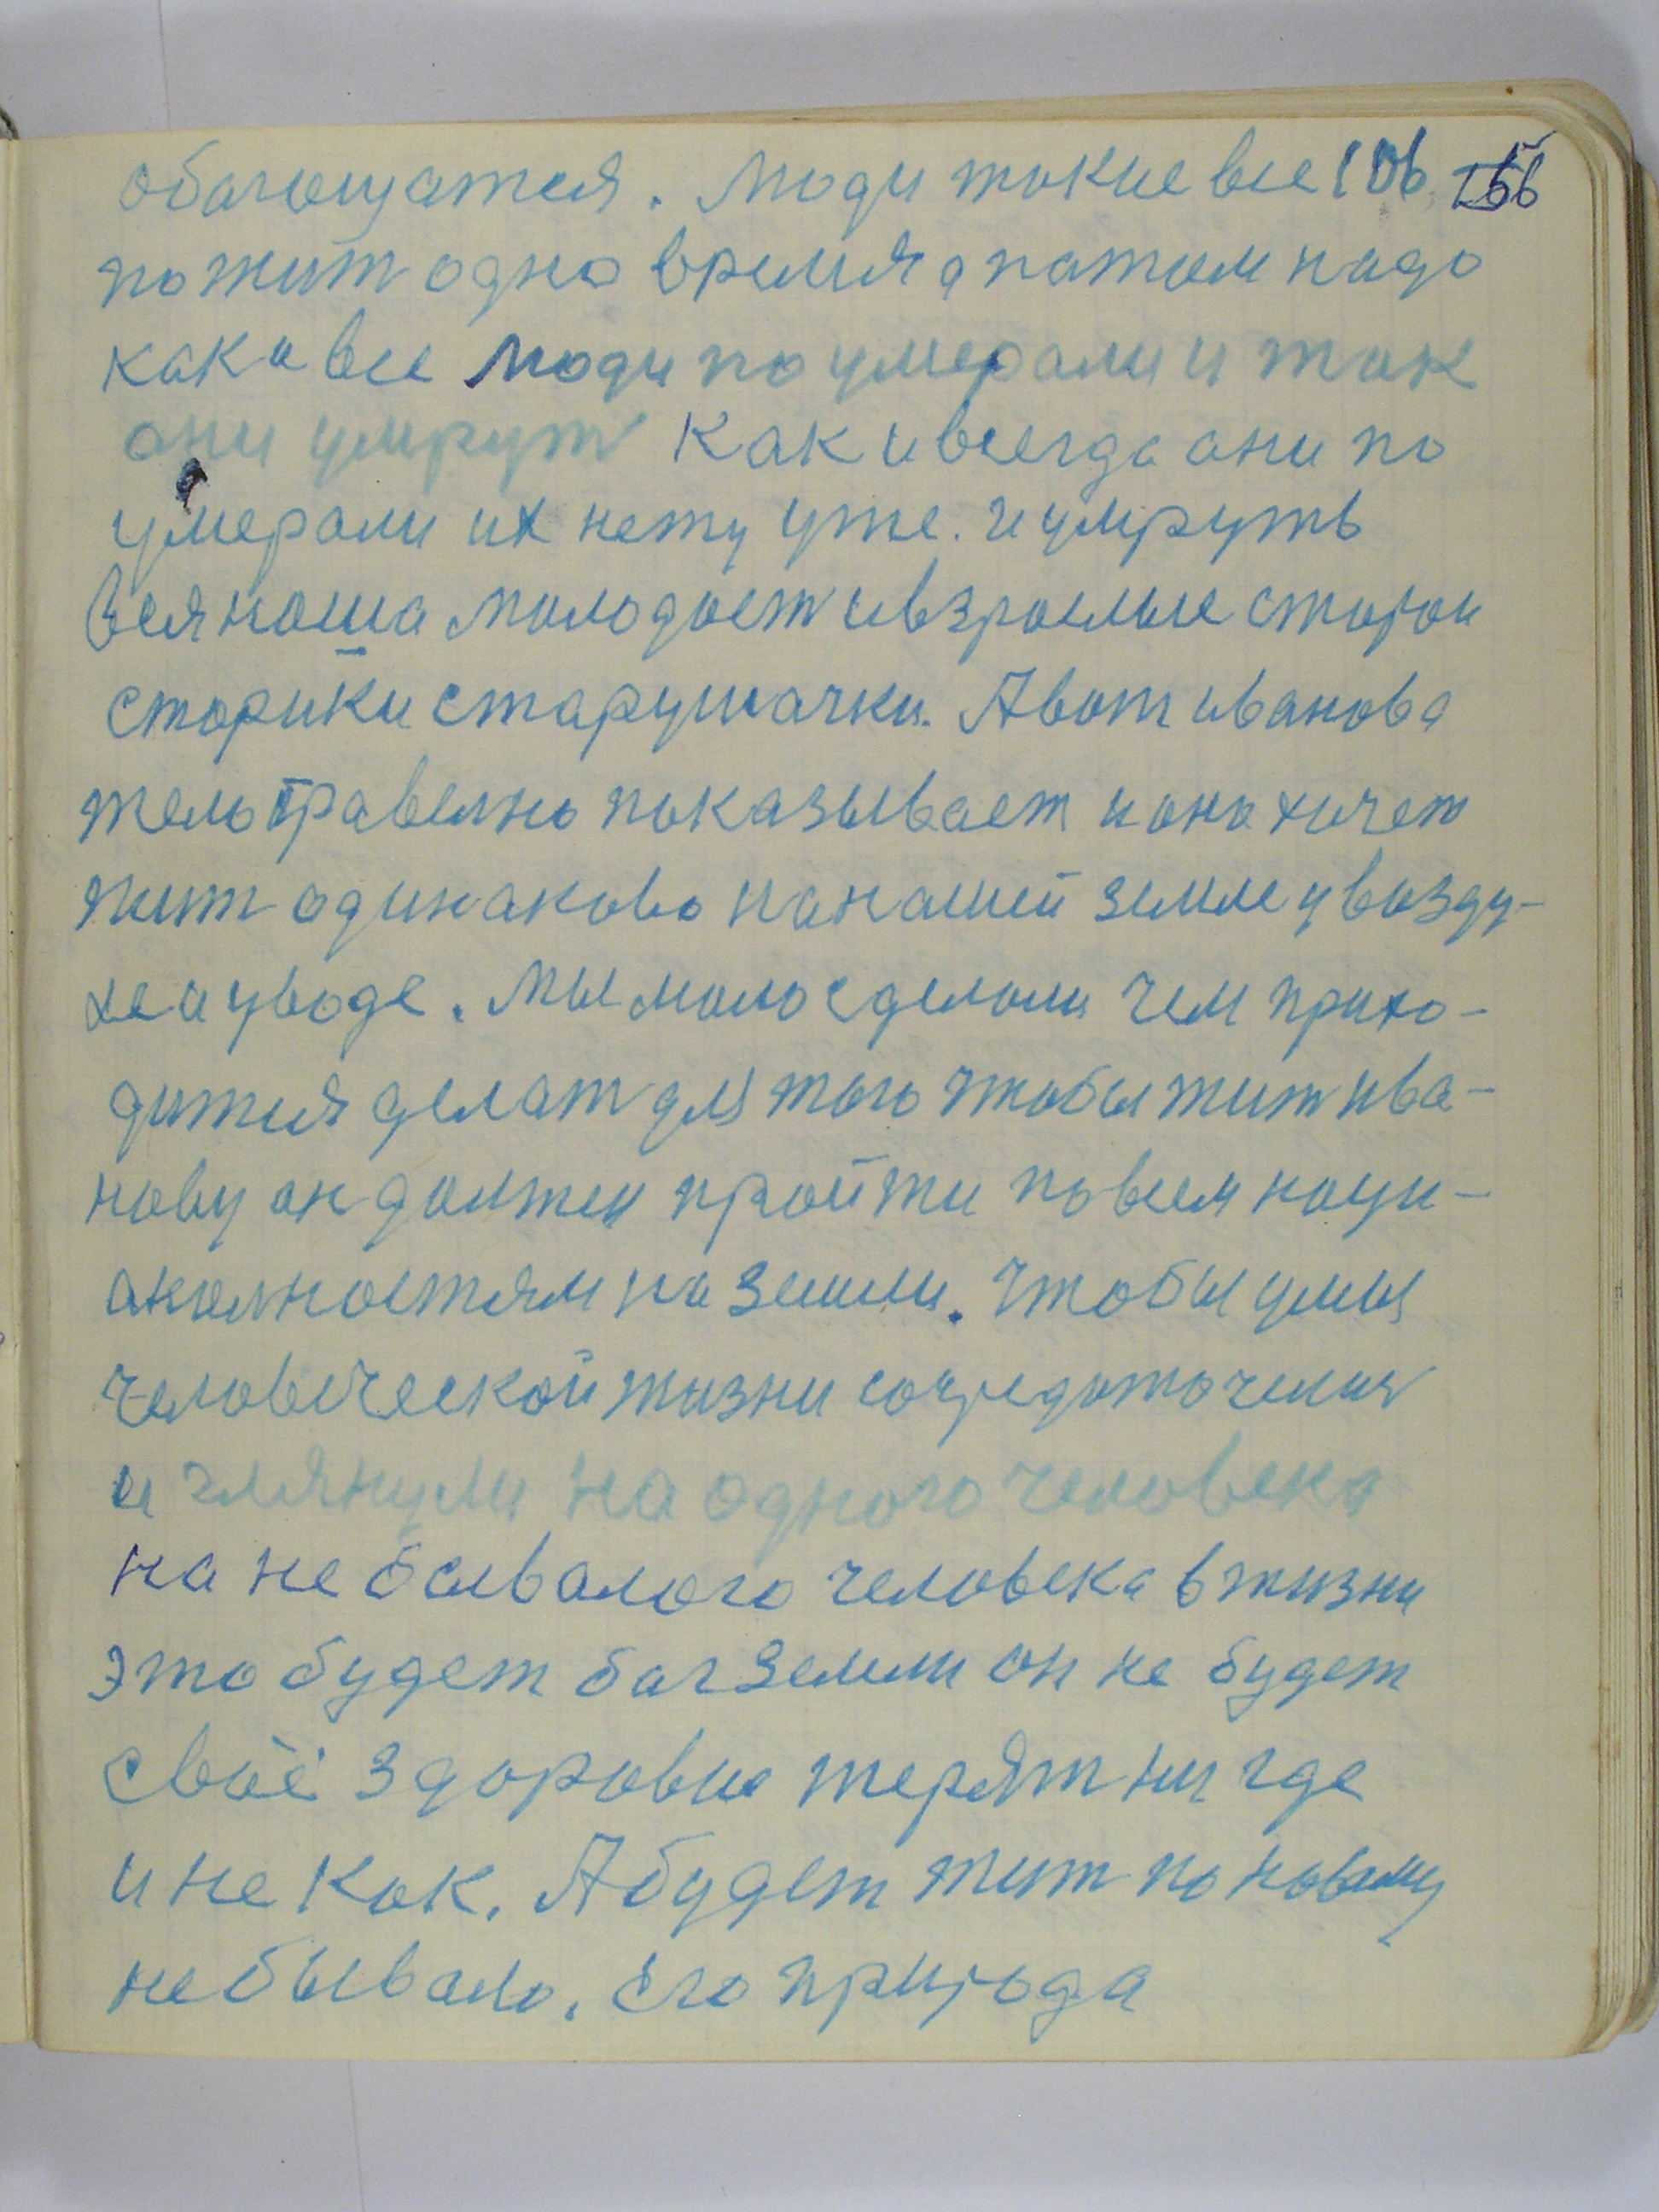 обагащатся. Люди такие все 106 166
пожит одно время а патом надо
как и все люди поумерали и так
они умрут Как и всегда они по
умерали их нету уже. и умруть
вся наша молодост и взрослые старои
старики старушачки. А вот иванова
тело правелно показывает и оно хочет
жит одинаково на нашей земле у возду-
хе и у воде. Мы мало сделали чем прихо-
дится делат для того чтобы жит ива-
нову он должен пройти по всем наци-
аналностям на земли. Чтобы умы
человеческой жизни сосредоточения
и глянули на одного человека
на не бывалого человека в жизни
это будет бог земли он не будет
своё здоровие терят ни где
и не как. А будет жит по новаму
небывало. Его природа